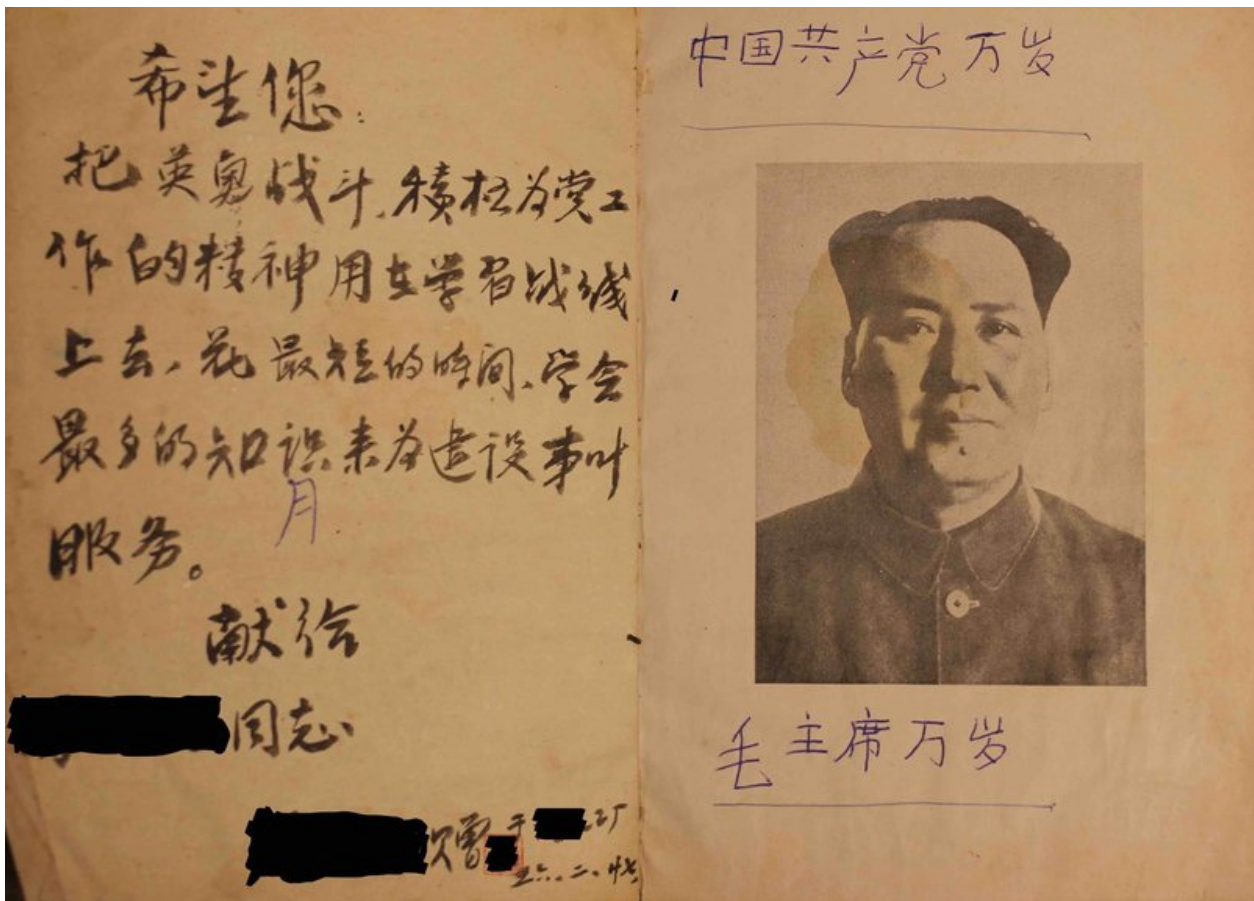 希望您:
把英勇战斗,积极为党工
作的精神用在学习战线
上去,花最短的时间,学会
最多的知识来为建设事叶
月
服务。
献给
同志
赠于 工厂
五六.二.廿七
中国共产党万岁
毛主席万岁